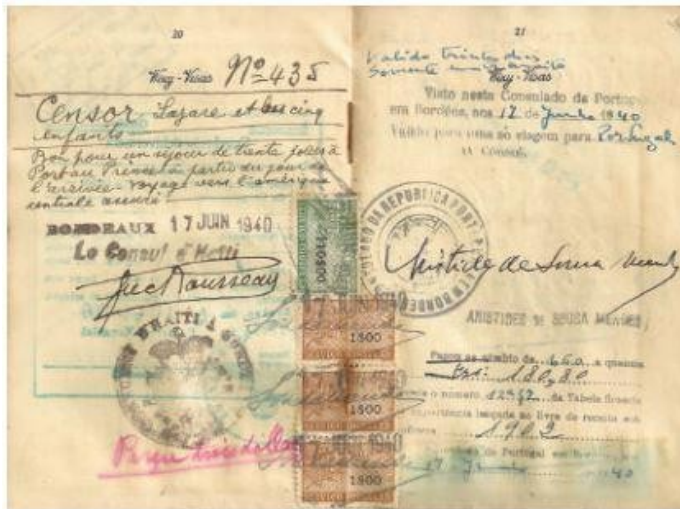 20
Wizy-Visas Nº 435
Censor Lazare et ses cinq
enfants
Bon pour un séjour de trente jours à
Port au Prince à partir du jour de
l'arrivée - voyage vers l'amérique
centrale assuré
BORDEAUX 17 JUIN 1940
Le Consul d'Haiti
CONSULAT D'HAITI A
21
Valido trinta dias
Somente em transito
Wizy-Visas
Visto neste Consulado de Portugal
em Bordéus, aos 17 de Junho 1940
Válido para uma só viagem para Portugal
O Consul,
CONSULADO DA REPUBLICA PORT EM BORDEUS
Aristides de Sousa Mendes
ARISTIDES DE SOUSA MENDES
17 JUN 1940
1$00
1$00
1940
1$00
Pagou ao câmbio de a quantia
180,80
o número da Tabela
importancia lançada no livro de receita sob
1902
de Portugal em
17 Junho 40